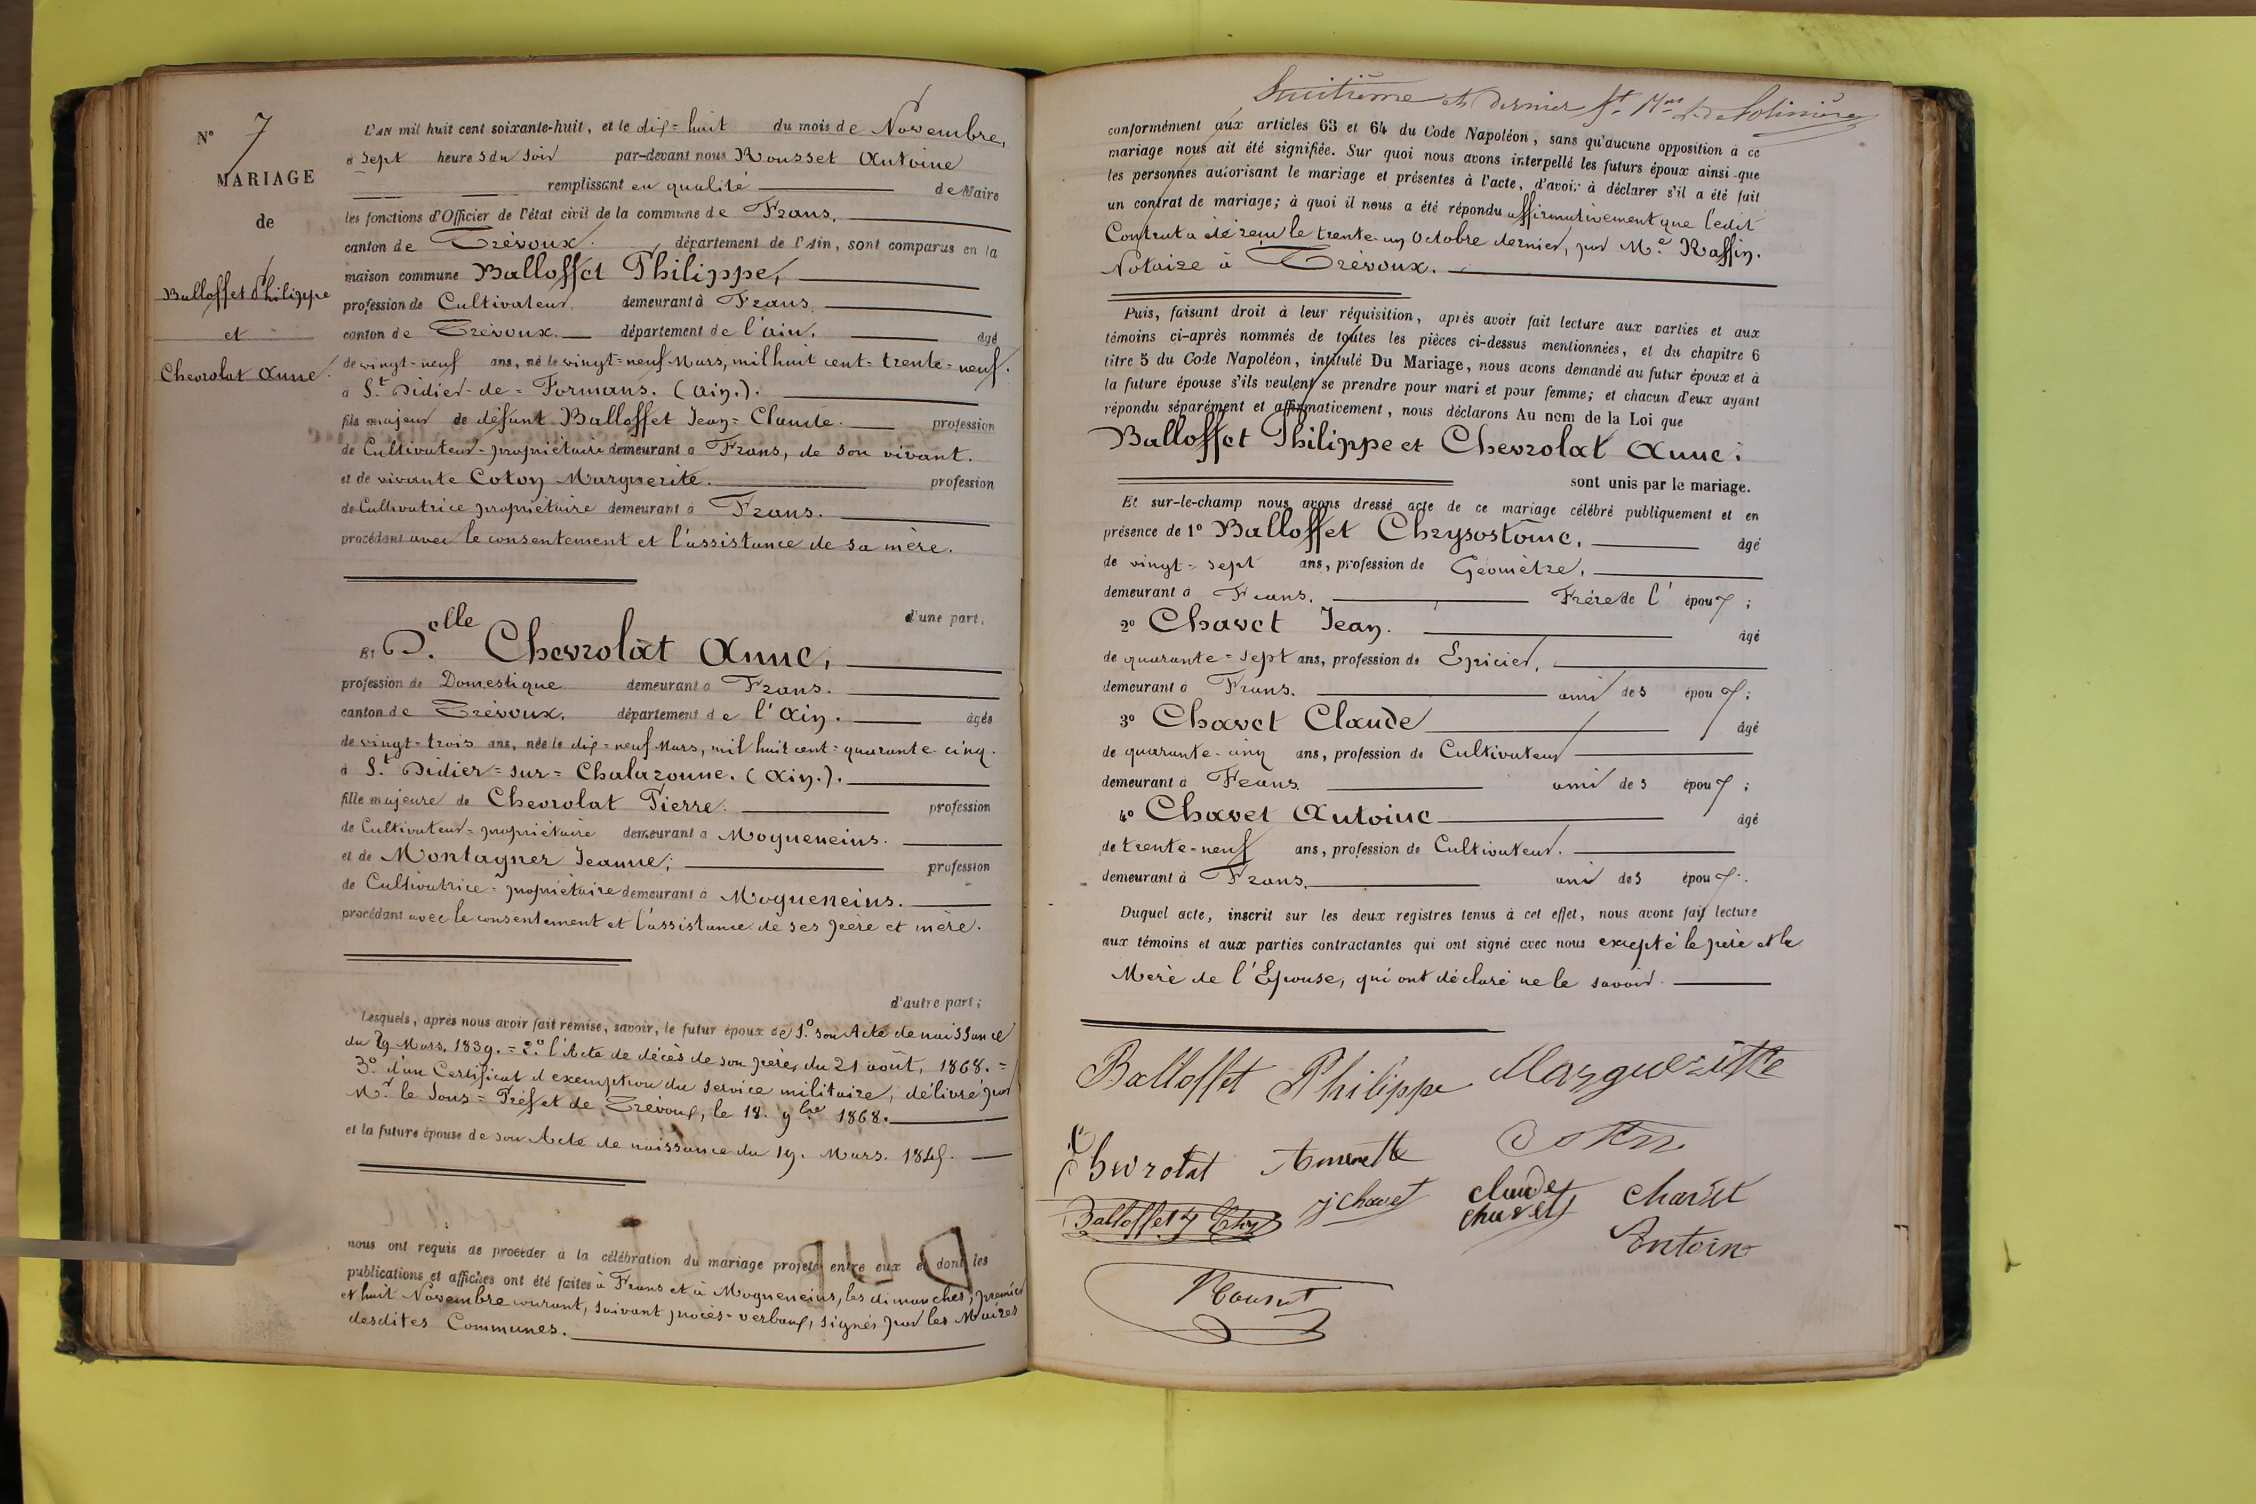 N° 7
MARIAGE
de
Balloffet Philippe
et
Chevrolat Anne.
L'AN mil huit cent soixante-huit, et le dix=huit du mois de Novembre,
à sept heures du soir par-devant nous Rousset Antoine
remplissant en qualité de Maire
les fonctions d'Officier de l'état civil de la commune de Frans,
canton de Trévoux. département de l'Ain, sont comparus en la
maison commune Balloffet Philippe,
profession de Cultivateur demeurant à Frans
canton de Trévoux. département de l'ain, âgé
de vingt-neuf ans, né le vingt=neuf Mars, mil huit cent=trente=neuf.
à St. Didier-de=Formans. (Ain.).
fils majeur de défunt Balloffet Jean=Claude. profession
de Cultivateur=propriétaire demeurant à Frans, de son vivant.
et de vivante Coton Marguerite. profession
de Cultivatrice propriétaire demeurant à Frans.
procédant avec le consentement et l'assistance de sa mère.
d'une part.
Et D.elle Chevrolat Anne,
profession de Domestique demeurant à Frans.
canton de Trévoux. département de l'Ain. âgée
de vingt=trois ans, née le dix=neuf Mars, mil huit cent=quarante-cinq.
à St. Didier=sur=Chalaronne. (Ain.).
fille majeure de Chevrolat Pierre. profession
de Cultivateur=propriétaire demeurant à Mogneneins.
et de Montagner Jeanne; profession
de Cultivatrice=propriétaire demeurant à Mogneneins.
procédant avec le consentement et l'assistance de ses père et mère.
d'autre part;
Lesquels, après nous avoir fait remise, savoir, le futur époux de 1.° son Acte de naissance
du 29 Mars. 1839.=2.° l'Acte de décès de son père, du 21 août, 1868.=
3.° d'un Certificat d'exemption du service militaire, délivré par
Mr. le Sous=Préfet de Trévoux, le 18. 9bre 1868.
et la future épouse de son Acte de naissance du 19. Mars. 1845.
nous ont requis de procéder à la célébration du mariage projeté entre eux et dont les
publications et affiches ont été faites à Frans et à Mogneneins, les dimanches, premier
et huit Novembre courant, suivant procès-verbaux, signés par les Maires
desdites Communes.
et dernier
conformément aux articles 63 et 64 du Code Napoléon, sans qu'aucune opposition à ce
mariage nous ait été signifiée. Sur quoi nous avons interpellé les futurs époux ainsi que
les personnes autorisant le mariage et présentes à l'acte, d'avoir à déclarer s'il a été fait
un contrat de mariage; à quoi il nous a été répondu affirmativement que ledit
Contrat a été reçu le trente-un Octobre dernier, par Me. Raffin.
Notaire à Trévoux.
Puis, faisant droit à leur réquisition, après avoir fait lecture aux parties et aux
témoins ci-après nommés de toutes les pièces ci-dessus mentionnées, et du chapitre 6
titre 5 du Code Napoléon, intitulé Du Mariage, nous avons demandé au futur époux et à
la future épouse s'ils veulent se prendre pour mari et pour femme; et chacun d'eux ayant
répondu séparément et affirmativement, nous déclarons Au nom de la Loi que
Balloffet Philippe et Chevrolat Anne;
sont unis par le mariage.
Et sur-le-champ nous avons dressé acte de ce mariage célébré publiquement et en
présence de 1° Balloffet Chrysostôme, âgé
de vingt=sept ans, profession de Géomètre,
demeurant à Frans. Frère de l'époux;
2° Chavet Jean. âgé
de quarante=sept ans, profession de Epicier,
demeurant à Frans. ami des époux;
3° Chavet Claude âgé
de quarante-cinq ans, profession de Cultivateur
demeurant à Frans ami des époux;
4° Chavet Antoine âgé
de trente-neuf ans, profession de Cultivateur.
demeurant à Frans, ami des époux.
Duquel acte, inscrit sur les deux registres tenus à cet effet, nous avons fait lecture
aux témoins et aux parties contractantes qui ont signé avec nous excepté le père et la
Mère de l'Epouse, qui ont déclaré ne le savoir.
Balloffet Philippe Margueritte
Chevrolat Annette Coton
Balloffet J Chavet Claude Chavet Chavet
Antoine
Rousset